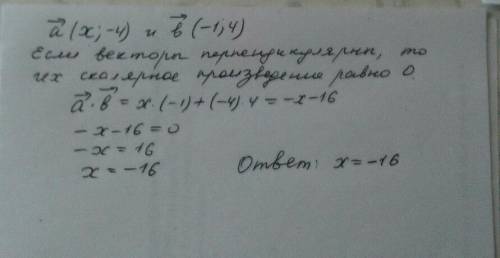 a⃗ (x; -4) и b⃗ (-1; 4)
Если векторы перпендикулярны, то
их скалярное произведение равно 0.
a⃗ · b⃗ = x · (-1) + (-4) · 4 = -x - 16
-x - 16 = 0
-x = 16
x = -16 Ответ: x = -16